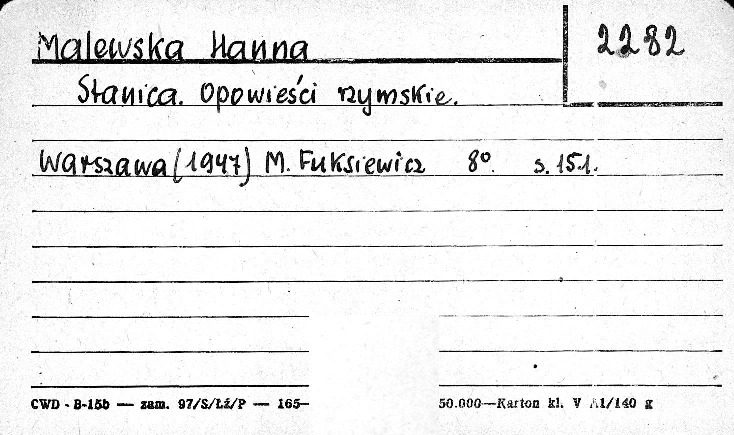 Malewska Hanna
2282
Stanica. Opowieści rzymskie.
Warszawa (1947) M. Fuksiewicz 8° s. 151.
CWD - B-15b — zam. 97/S/Łź/P — 165— 50.000—Karton kl. V A1/140 g